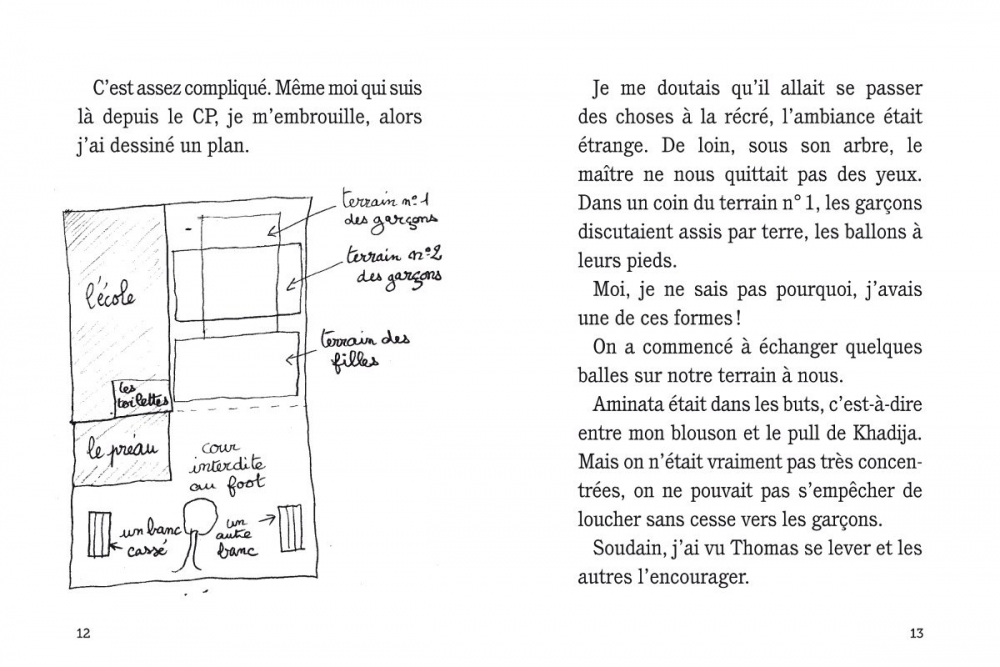 C'est assez compliqué. Même moi qui suis
là depuis le CP, je m'embrouille, alors
j'ai dessiné un plan.
terrain n°1
des garçons
terrain n°2
des garçons
l'école
terrain des
filles
les
toilettes
le préau
cour
interdite
au foot
un banc
cassé
un
autre
banc
12
Je me doutais qu'il allait se passer
des choses à la récré, l'ambiance était
étrange. De loin, sous son arbre, le
maître ne nous quittait pas des yeux.
Dans un coin du terrain n° 1, les garçons
discutaient assis par terre, les ballons à
leurs pieds.
Moi, je ne sais pas pourquoi, j'avais
une de ces formes !
On a commencé à échanger quelques
balles sur notre terrain à nous.
Aminata était dans les buts, c'est-à-dire
entre mon blouson et le pull de Khadija.
Mais on n'était vraiment pas très concen-
trées, on ne pouvait pas s'empêcher de
loucher sans cesse vers les garçons.
Soudain, j'ai vu Thomas se lever et les
autres l'encourager.
13